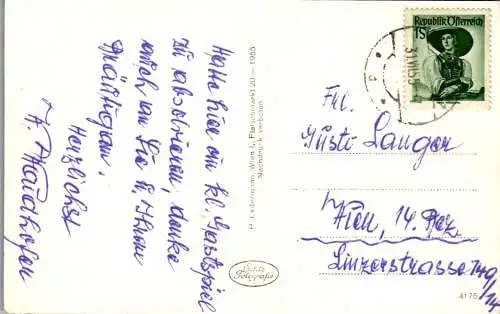 Habe hier ein kl. Gastspiel
zu absolvieren, denke
auch an Sie u. Ihren
Bräutigam.
Herzlichst
P. Ledermann, Wien I, Fleischmarkt 20 — 1955
Nachdruck verboten
Echte
Fotografie
Republik Österreich
1S
Frl.
Gusti Langer
Wien, 14. Bez.
Linzerstrasse 749/14
4175